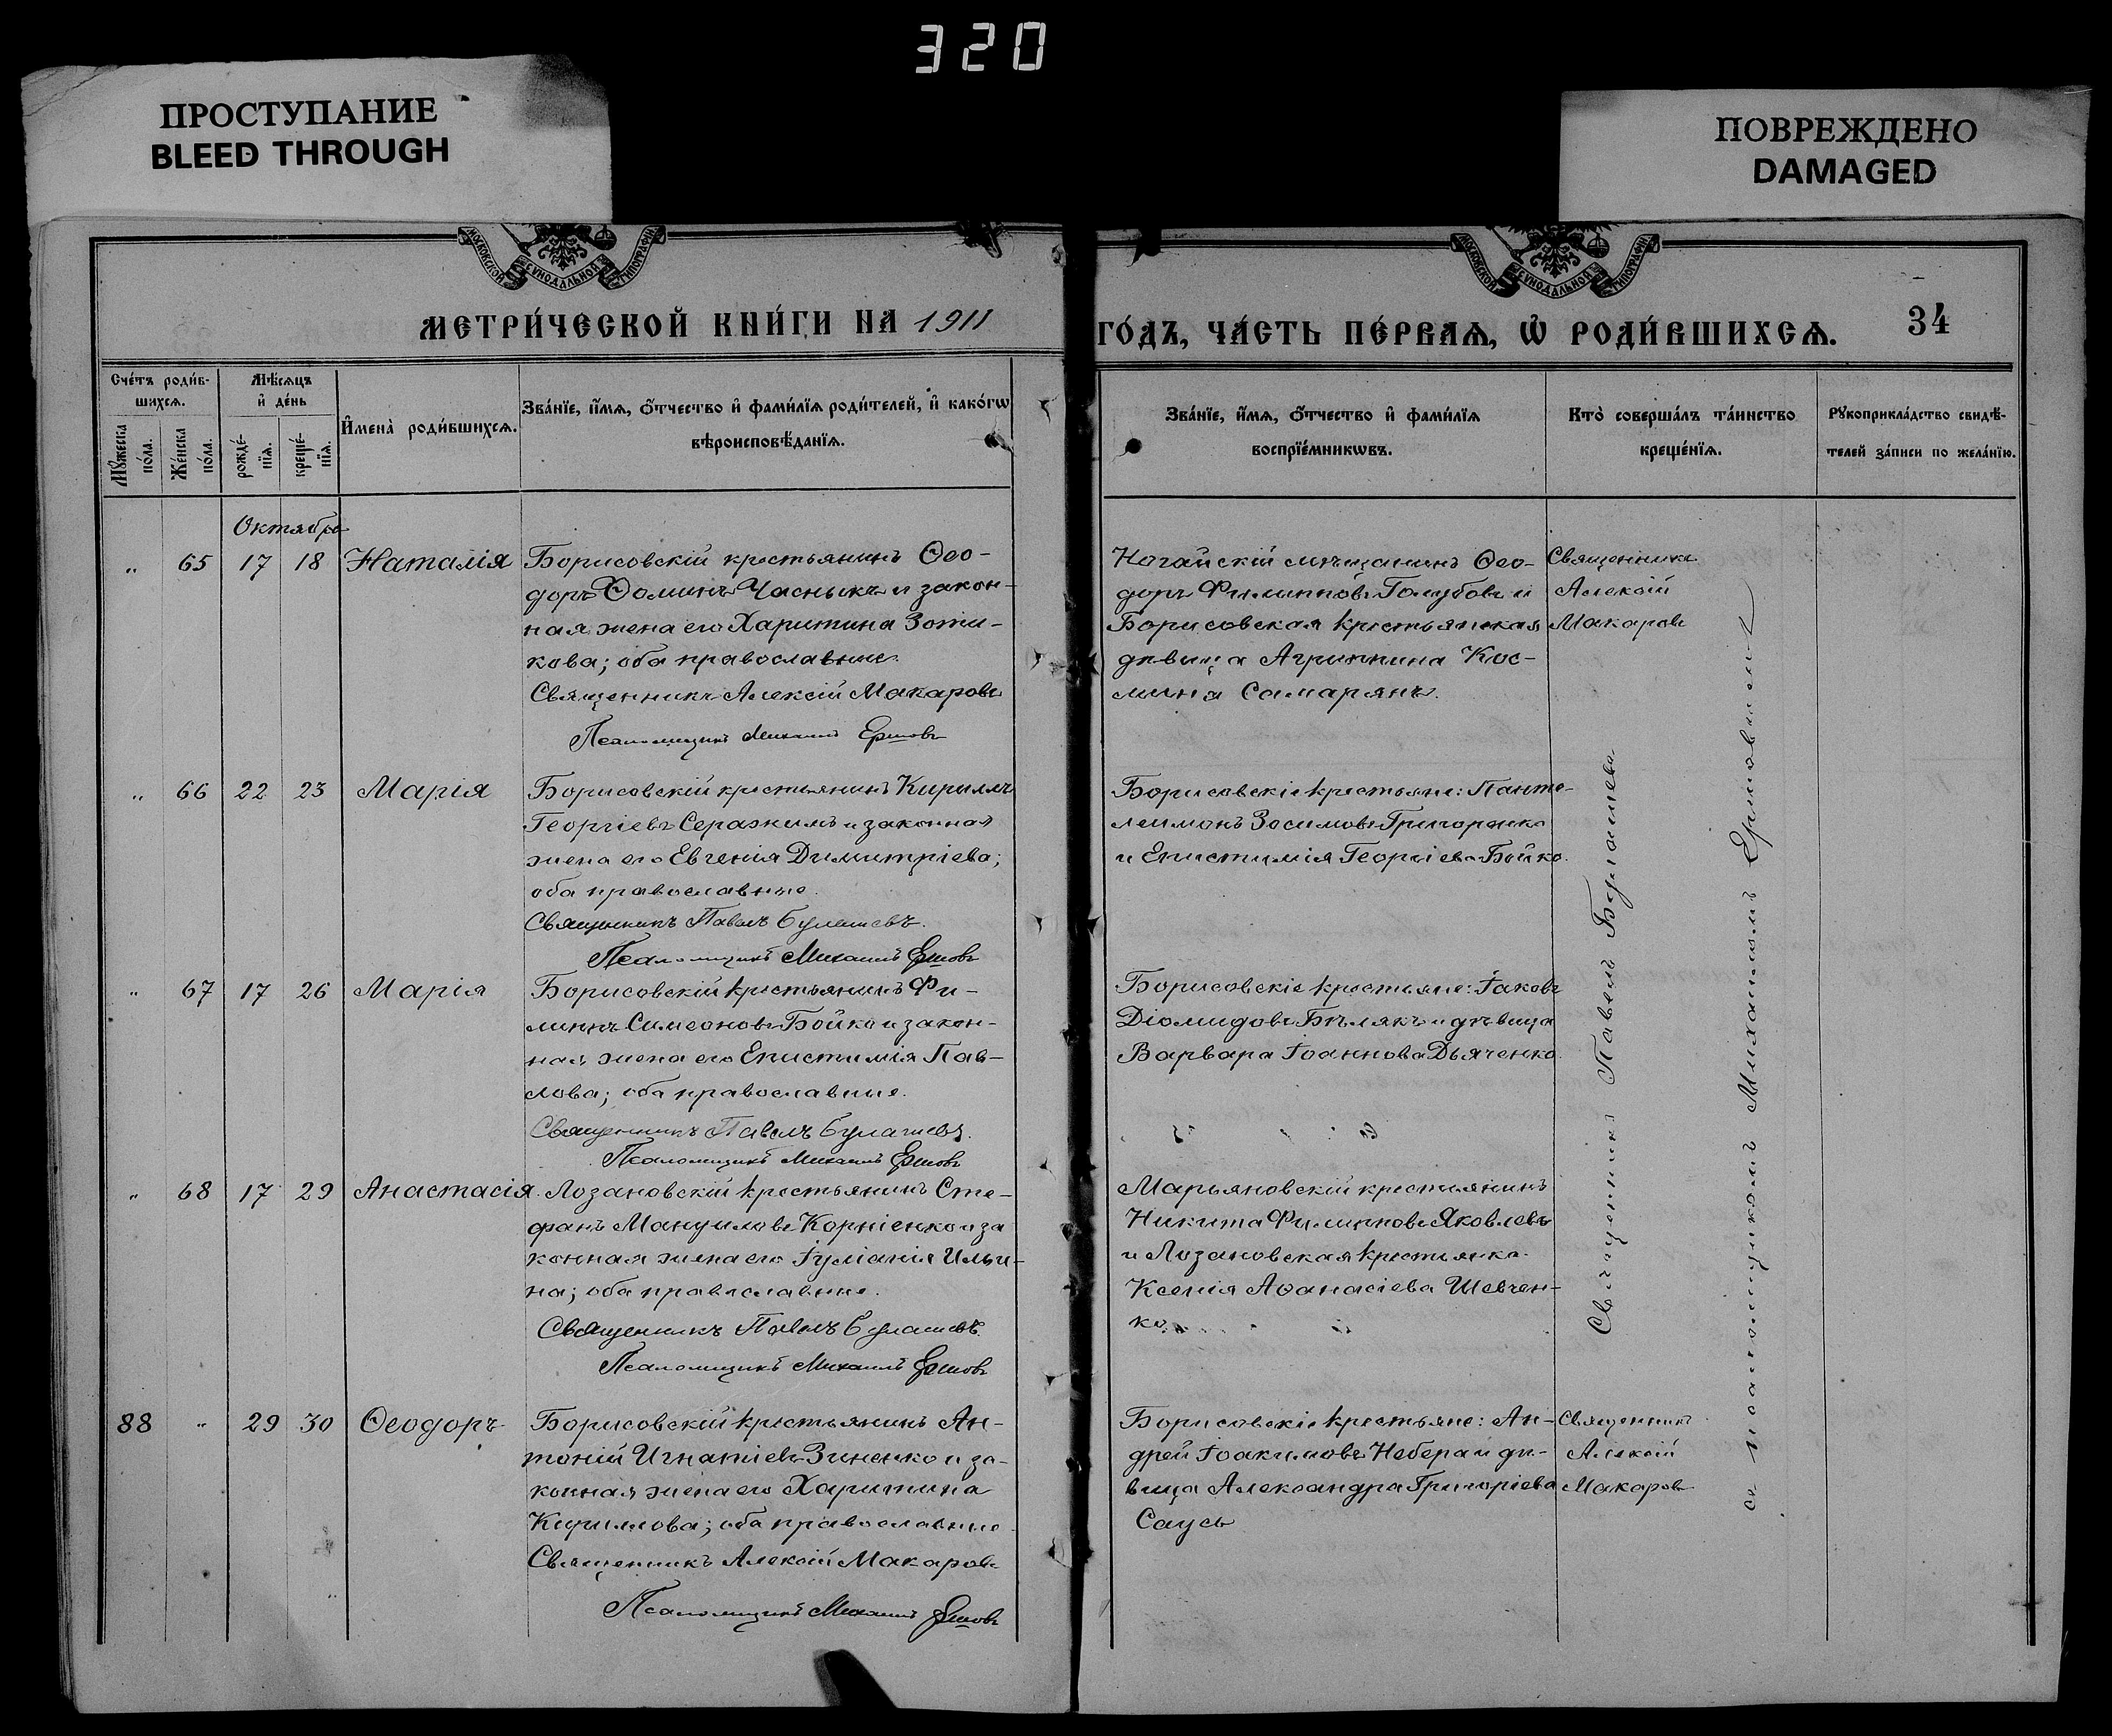 320
ПРОСТУПАНИЕ
BLEED THROUGH
ПОВРЕЖДЕНО
DAMAGED
МОСКОВСКОЙ СѴНОДАЛЬНОЙ ТИПОГРАФІИ
МОСКОВСКОЙ СѴНОДАЛЬНОЙ ТИПОГРАФІИ
МЕТРИ́ЧЕСКОЙ КНИ́ГИ НА 1911
ГО́ДЪ, ЧА́СТЬ ПЕ́РВАѦ, Ѡ҆ РОДИ́ВШИХСѦ.
34
Сче́тъ роди́в-
шихсѧ.
Мѣ́сѧцъ
и҆ де́нь
Мꙋ́жеска
по́ла.
Же́нска
по́ла.
рожде́-
нїѧ.
креще́-
нїѧ.
И҆мена̀ роди́вшихсѧ.
Зва́нїе, и҆́мѧ, ѻ҆́тчество и҆ фами́лїѧ роди́телей, и҆ како́гѡ
вѣроисповѣ́данїѧ.
Зва́нїе, и҆́мѧ, ѻ҆́тчество и҆ фами́лїѧ
воспрїе́мникѡвъ.
Кто̀ соверша́лъ та́инство
креще́нїѧ.
Рꙋкоприкла́дство свидѣ́-
телей за́писи по жела́нїю.
Октября
„ 65 17 18 Наталія
Борисовскій крестьянинъ Ѳео-
доръ Ѳоминъ Часныкъ и закон-
ная жена его Харитина Зоти-
кова; оба православные.
Священникъ Алексій Макаровъ
Псаломщикъ Михаилъ Ершовъ
Ногайскій мѣщанинъ Ѳео-
доръ Филипповъ Голубовъ и
Борисовская крестьянская
дѣвица Агриппина Кос-
мина Самарянъ.
Священникъ
Алексій
Макаровъ
„ 66 22 23 Марія
Борисовскій крестьянинъ Кириллъ
Георгіевъ Сережимъ и законная
жена его Евгенія Димитріева;
оба православные.
Священникъ Павелъ Булашевъ.
Псаломщикъ Михаилъ Ершовъ
Борисовскіе крестьяне: Панте-
леимонъ Зосимовъ Григоренко
и Епистимія Георгіева Бойко.
„ 67 17 26 Марія
Борисовскій крестьянинъ Фи-
липпъ Симеоновъ Бойко и закон-
ная жена его Епистимія Пав-
лова; оба православные.
Священникъ Павелъ Булашевъ.
Псаломщикъ Михаилъ Ершовъ
Борисовскіе крестьяне: Іаковъ
Діомидовъ Бѣлякъ и дѣвица
Варвара Іоаннова Дьяченко.
„ 68 17 29 Анастасія
Лозановскій крестьянинъ Сте-
фанъ Мануиловъ Корніенко и за
конная жена его Іуліанія Ильи-
на; оба православные.
Священникъ Павелъ Булашевъ.
Псаломщикъ Михаилъ Ершовъ
Марьяновскій крестьянинъ
Никита Филипповъ Яковлевъ
и Лозановская крестьянка
Ксенія Аѳанасіева Шевчен-
ко
Священникъ Павелъ Булашевъ
съ псаломщикомъ Михаиломъ Ершовымъ
88 „ 29 30 Ѳеодоръ
Борисовскій крестьянинъ Ан-
тоній Игнатіевъ Зиненко и за-
конная жена его Харитина
Кириллова; оба православные.
Священникъ Алексій Макаровъ
Псаломщикъ Михаилъ Ершовъ
Борисовскіе крестьяне: Ан-
дрей Іоакимовъ Небера и дѣ-
вица Александра Григоріева
Саусь
Священникъ
Алексій
Макаровъ